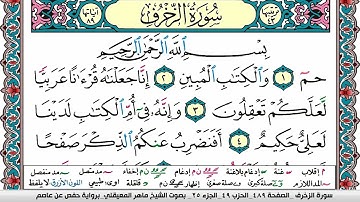 ترتيبها ٤٣
سُورَةُ الزُّخْرُفِ
آياتها ٨٩
بِسْمِ ٱللَّهِ ٱلرَّحْمَٰنِ ٱلرَّحِيمِ
حمٓ ١ وَٱلْكِتَٰبِ ٱلْمُبِينِ ٢ إِنَّا جَعَلْنَٰهُ قُرْءَٰنًا عَرَبِيًّا
لَّعَلَّكُمْ تَعْقِلُونَ ٣ وَإِنَّهُۥ فِىٓ أُمِّ ٱلْكِتَٰبِ لَدَيْنَا
لَعَلِىٌّ حَكِيمٌ ٤ أَفَنَضْرِبُ عَنكُمُ ٱلذِّكْرَ صَفْحًا
سورة الزخرف، الصفحة ٤٨٩ الجزء ٢٥ بصوت الشيخ ماهر المعيقلي، برواية حفص عن عاصم